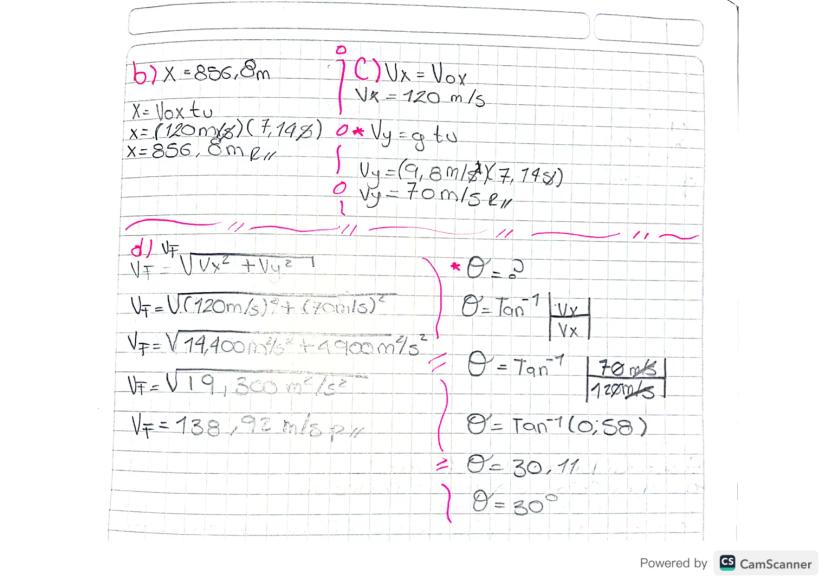 b) X = 856,8m
X = Vox tv
x = (120m/s)(7,14s)
x = 856,8m R//
C) Vx = Vox
Vx = 120 m/s
* Vy = g tv
Vy = (9,8m/s²)(7,14s)
Vy = 70m/s R//
d) VT
VT = √Vx² + Vy²
VT = √(120m/s)² + (70m/s)²
VT = √14,400m²/s² + 4900m²/s²
VT = √19,300 m²/s²
VT = 138,92 m/s R//
* θ = ?
θ = Tan⁻¹ |Vx/Vx|
θ = Tan⁻¹ |70m/s/120m/s|
θ = Tan⁻¹(0,58)
θ = 30,11
θ = 30°
Powered by CS CamScanner